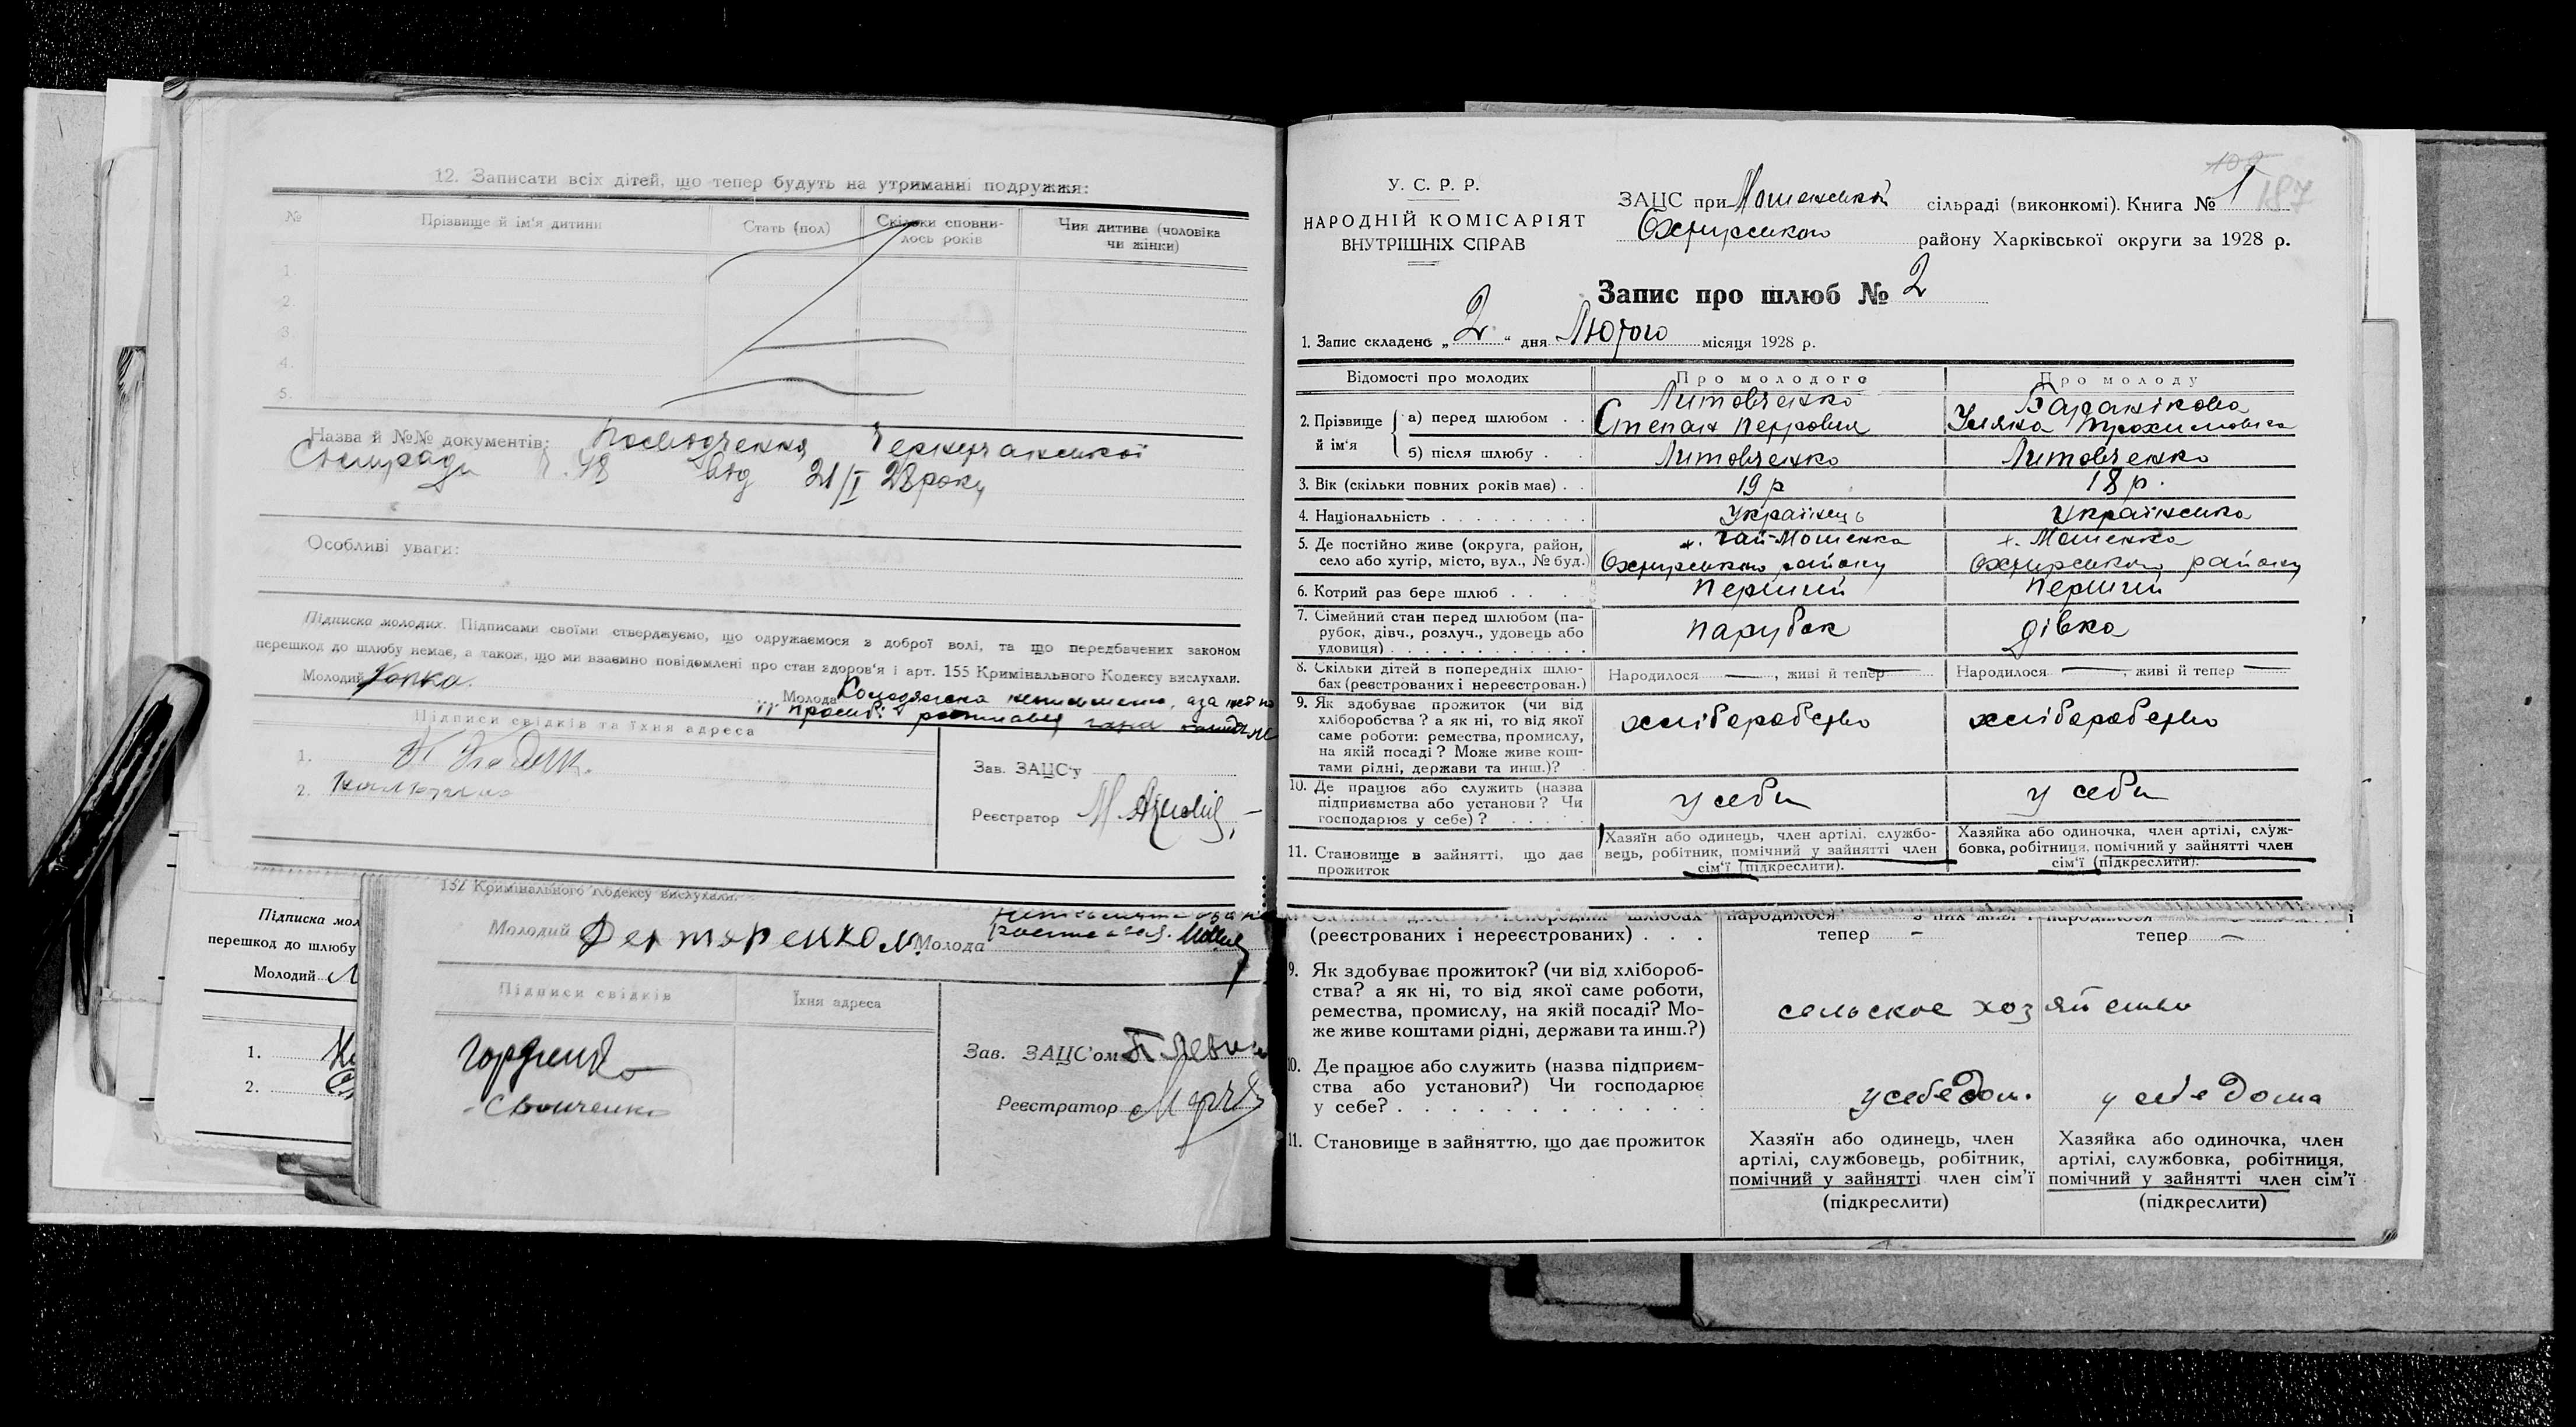 12. Записати всіх дітей, що тепер будуть на утриманні подружжя:
№ Прізвище й ім'я дитини Стать (пол) Скільки сповни-лось років Чия дитина (чоловіка чи жінки)
1.
2.
3.
4.
5.
Назва й №№ документів: Посвідчення
Сільради 48 від 21/I 28 року
Особливі уваги:
Підписка молодих. Підписами своїми стверджуємо, що одружаємося з доброї волі, та що передбачених законом
перешкод до шлюбу немає, а також, що ми взаємно повідомлені про стан здоров'я і арт. 155 Кримінального Кодексу вислухали.
Молодий
Молода неписьменна, а за неї по
її прозьбі росписався
Підписи свідків та їхня адреса
1.
2.
Зав. ЗАЦС'у
Реєстратор М.
Підписка мол
перешкод до шлюбу
Молодий
1.
2.
Кримінального Кодексу вислухали.
Молодий Молода
Підписи свідків Їхня адреса
Гордієнко
Зав. ЗАЦС'ом
Реєстратор
108
187
У. С. Р. Р.
НАРОДНІЙ КОМІСАРІЯТ
ВНУТРІШНІХ СПРАВ
ЗАЦС при Мошенській сільраді (виконкомі). Книга № 1
Охтирського району Харківської округи за 1928 р.
Запис про шлюб № 2
1. Запис складено „2“ дня Лютого місяця 1928 р.
Відомості про молодих Про молодого Про молоду
2. Прізвище й ім'я
а) перед шлюбом Литовченко Степан Петрович Баранікова Уляна Трохимовна
б) після шлюбу Литовченко Литовченко
3. Вік (скільки повних років має) 19 р 18 р.
4. Національність Українець Українська
5. Де постійно живе (округа, район, х. Гай-Мошенка х. Мошенка
село або хутір, місто, вул., № буд.) Охтирського району Охтирського району
6. Котрий раз бере шлюб Перший Перший
7. Сімейний стан перед шлюбом (па-
рубок, дівч., розлуч., удовець або парубок дівка
удовиця)
8. Скільки дітей в попередніх шлю- Народилося —, живі й тепер — Народилося —, живі й тепер —
бах (реєстрованих і нереєстрован.)
9. Як здобуває прожиток (чи від
хліборобства? а як ні, то від якої хліборобство хліборобство
саме роботи: ремества, промислу,
на якій посаді? Може живе кош-
тами рідні, держави та инш.)?
10. Де працює або служить (назва
підприємства або установи? Чи у себе у себе
господарює у себе)?
11. Становище в зайнятті, що дає прожиток
Хазяїн або одинець, член артілі, службо-
вець, робітник, помічний у зайнятті член
сім'ї (підкреслити).
Хазяйка або одиночка, член артілі, служ-
бовка, робітниця, помічний у зайнятті член
сім'ї (підкреслити).
(реєстрованих і нереєстрованих) тепер — тепер —
9. Як здобуває прожиток? (чи від хлібороб-
ства? а як ні, то від якої саме роботи,
ремества, промислу, на якій посаді? Мо- сельское хозяйство
же живе коштами рідні, держави та инш.?)
10. Де працює або служить (назва підприєм-
ства або установи?) Чи господарює у себе дом. у себе дома
у себе?
11. Становище в зайняттю, що дає прожиток
Хазяїн або одинець, член
артілі, службовець, робітник,
помічний у зайнятті член сім'ї
(підкреслити)
Хазяйка або одиночка, член
артілі, службовка, робітниця,
помічний у зайнятті член сім'ї
(підкреслити)